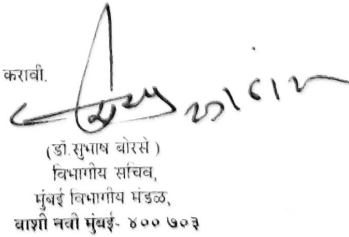 करावी.
(डॉ.सुभाष बोरसे )
विभागीय सचिव,
मुंबई विभागीय मंडळ,
वाशी नवी मुंबई- ४०० ७०३